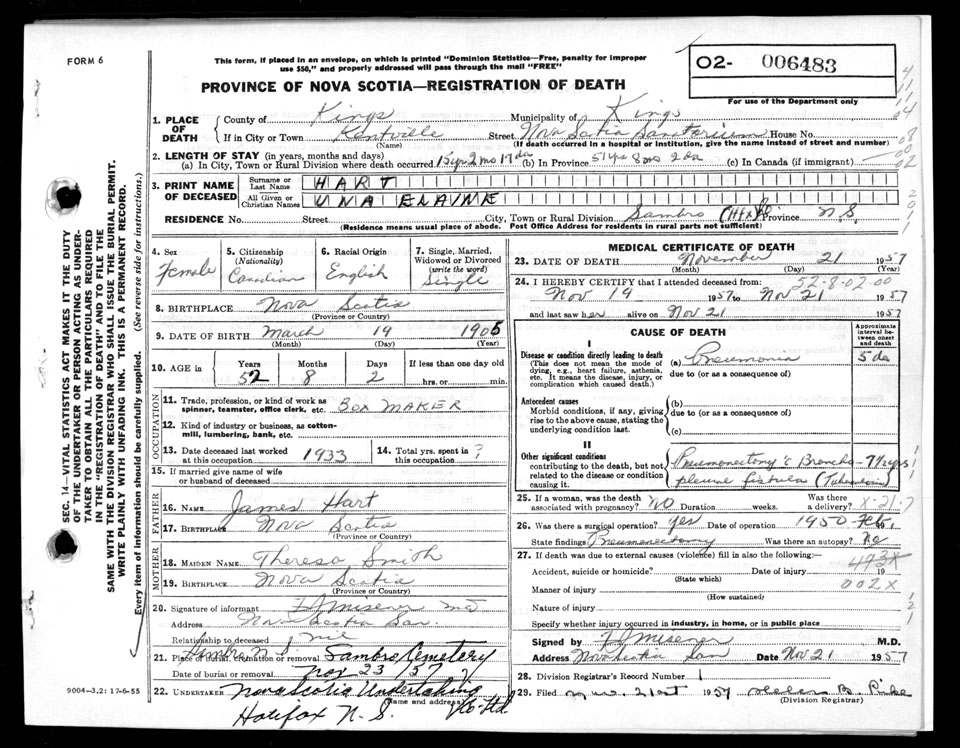 FORM 6
This form, if placed in an envelope, on which is printed "Dominion Statistics—Free, penalty for improper
use $50," and properly addressed will pass through the mail "FREE"
PROVINCE OF NOVA SCOTIA—REGISTRATION OF DEATH
02- 006483
For use of the Department only
SEC. 14—VITAL STATISTICS ACT MAKES IT THE DUTY
OF THE UNDERTAKER OR PERSON ACTING AS UNDER-
TAKER TO OBTAIN ALL THE PARTICULARS REQUIRED
IN THE "REGISTRATION OF DEATH" AND TO FILE THE
SAME WITH THE DIVISION REGISTRAR WHO SHALL ISSUE THE BURIAL PERMIT.
WRITE PLAINLY WITH UNFADING INK. THIS IS A PERMANENT RECORD.
Every item of information should be carefully supplied. (See reverse side for instructions.)
1. PLACE OF DEATH
County of Kings Municipality of Kings
If in City or Town Kentville Street Nova Scotia Sanatorium House No.
(Name) (If death occurred in a hospital or institution, give the name instead of street and number)
2. LENGTH OF STAY (in years, months and days)
(a) In City, Town or Rural Division where death occurred 15yrs 2 mo 17 da (b) In Province 51 yrs 8 mo 2 da (c) In Canada (if immigrant)
3. PRINT NAME OF DECEASED
Surname or Last Name HART
All Given or Christian Names UNA ELAINE
RESIDENCE No. Street City, Town or Rural Division Sambro (Hfx Co) Province N.S.
(Residence means usual place of abode. Post Office Address for residents in rural parts not sufficient)
4. Sex Female
5. Citizenship (Nationality) Canadian
6. Racial Origin English
7. Single, Married, Widowed or Divorced (write the word) Single
8. BIRTHPLACE Nova Scotia
(Province or Country)
9. DATE OF BIRTH March 19 1905
(Month) (Day) (Year)
10. AGE in Years 52 Months 8 Days 2 If less than one day old hrs. or min.
OCCUPATION
11. Trade, profession, or kind of work as
spinner, teamster, office clerk, etc. BOX MAKER
12. Kind of industry or business, as cotton-
mill, lumbering, bank, etc.
13. Date deceased last worked at this occupation 1933
14. Total yrs. spent in this occupation ?
15. If married give name of wife
or husband of deceased
FATHER
16. NAME James Hart
17. BIRTHPLACE Nova Scotia
(Province or Country)
MOTHER
18. MAIDEN NAME Theresa Smith
19. BIRTHPLACE Nova Scotia
(Province or Country)
20. Signature of informant Misener MD
Address Nova Scotia San.
Relationship to deceased nil
21. Place of burial, cremation or removal Sambro N.S. Sambro Cemetery
Date of burial or removal Nov 23 / 57
22. UNDERTAKER Nova Scotia Undertaking Co-Ltd
(Name and address)
Halifax N. S.
9004-3.2: 17-6-55
MEDICAL CERTIFICATE OF DEATH
23. DATE OF DEATH November 21 1957
(Month) (Day) (Year)
24. I HEREBY CERTIFY that I attended deceased from:
52-8-02-00
Nov 19 1957 to Nov 21 1957
and last saw her alive on Nov 21 1957
CAUSE OF DEATH
Approximate interval between onset and death
I
Disease or condition directly leading to death (a) Pneumonia 5 da
(This does not mean the mode of
dying, e.g., heart failure, asthenia,
etc. It means the disease, injury, or
complication which caused death.)
due to (or as a consequence of)
Antecedent causes (b)
Morbid conditions, if any, giving
rise to the above cause, stating the
underlying condition last.
due to (or as a consequence of)
(c)
II
Other significant conditions
contributing to the death, but not
related to the disease or condition
causing it.
Pneumonectomy c Broncho- 7 1/2 yrs
pleural fistula (Tuberculosis)
25. If a woman, was the death associated with pregnancy? NO Duration weeks. Was there a delivery?
26. Was there a surgical operation? yes Date of operation 1950 Feb.
State findings Pneumonectomy Was there an autopsy? No
27. If death was due to external causes (violence) fill in also the following:—
Accident, suicide or homicide? Date of injury 19
(State which)
493X
Manner of injury 002X
(How sustained)
Nature of injury
Specify whether injury occurred in industry, in home, or in public place
Signed by Misener M.D.
Address Nova Scotia San Date Nov 21 1957
28. Division Registrar's Record Number 1
29. Filed Nov. 21st 1957
(Division Registrar)